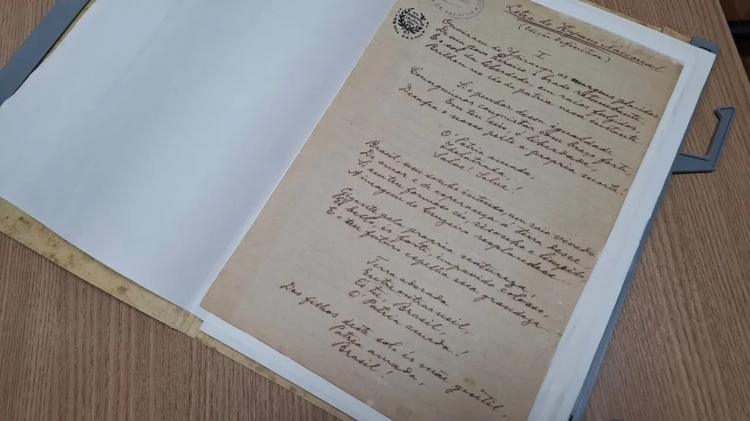 Letra do Hymno Nacional
(Edição Definitiva)
I
Ouviram do Ypiranga as margens placidas
De um povo heroico o brado retumbante,
E o sol da liberdade, em raios fulgidos,
Brilhou no céo da patria nesse instante.
Se o penhor dessa egualdade
Conseguimos conquistar com braço forte,
Em teu seio, ó liberdade,
Desafia o nosso peito a propria morte!
O' Patria amada,
Idolatrada,
Salve! Salve!
Brasil, um sonho intenso, um raio vivido
De amor e de esperança á terra desce,
Si em teu formoso céo, risonho e limpido,
A imagem do Cruzeiro resplandece.
Gigante pela propria natureza,
És bello, és forte, impavido colosso,
E o teu futuro espelha essa grandeza.
Terra adorada,
Entre outras mil,
És tu, Brasil,
O' Patria amada!
Dos filhos deste solo és mãe gentil,
Patria amada,
Brasil!